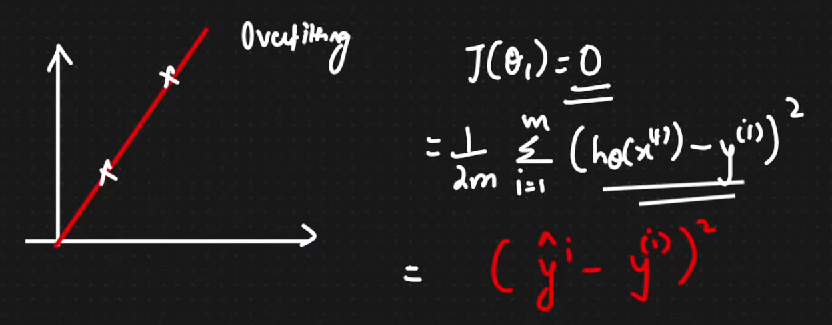 Overfitting
J(θ₁) = 0
= 1/2m Σ_{i=1}^{m} (hθ(x^{(i)}) - y^{(i)})²
= (ŷ^i - y^{(i)})²